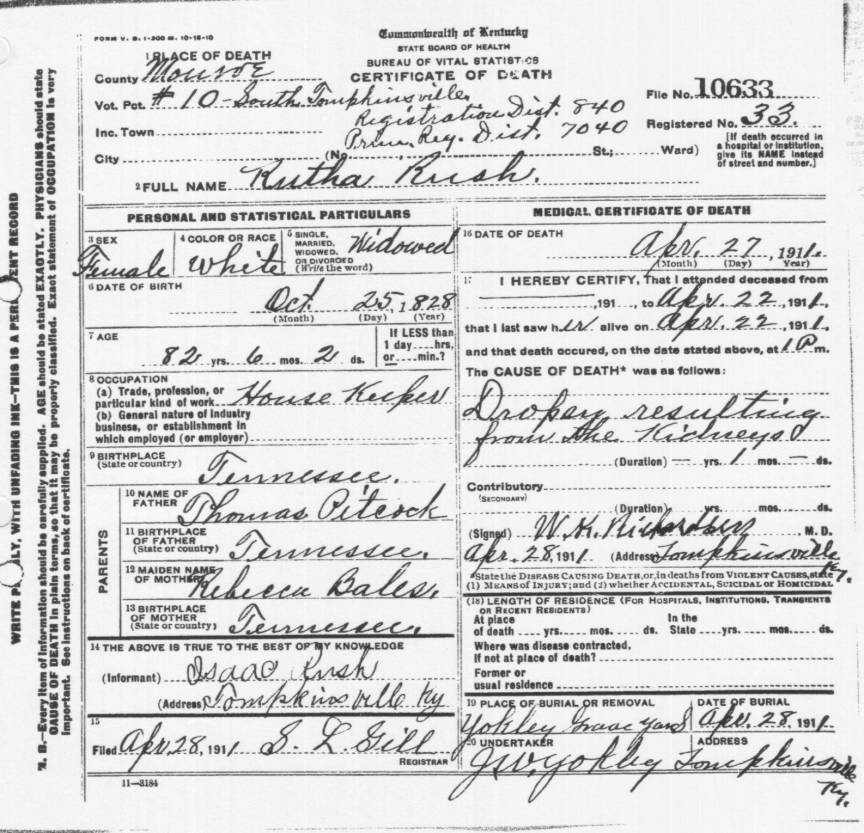 FORM V. S. 1-200 M. 10-15-10
Commonwealth of Kentucky
STATE BOARD OF HEALTH
BUREAU OF VITAL STATISTICS
CERTIFICATE OF DEATH
1 PLACE OF DEATH
County Monroe
Vot. Pct. # 10 - South Tompkinsville
Registration Dist. 840
Inc. Town
Prim. Reg. Dist. 7040
City (No. St.; Ward)
File No. 10633
Registered No. 33.
[If death occurred in
a hospital or institution,
give its NAME instead
of street and number.]
2 FULL NAME Rutha Rush.
PERSONAL AND STATISTICAL PARTICULARS
3 SEX
Female
4 COLOR OR RACE
White
5 SINGLE,
MARRIED,
WIDOWED,
OR DIVORCED
(Write the word)
Widowed
6 DATE OF BIRTH
Oct 25, 1828
(Month) (Day) (Year)
7 AGE
82 yrs. 6 mos. 2 ds.
If LESS than
1 day....hrs,
or....min.?
8 OCCUPATION
(a) Trade, profession, or
particular kind of work House Keeper
(b) General nature of industry
business, or establishment in
which employed (or employer)
9 BIRTHPLACE
(State or country)
Tennessee.
PARENTS
10 NAME OF
FATHER
Thomas Pitcock
11 BIRTHPLACE
OF FATHER
(State or country)
Tennessee.
12 MAIDEN NAME
OF MOTHER
Rebecca Bales.
13 BIRTHPLACE
OF MOTHER
(State or country)
Tennessee.
14 THE ABOVE IS TRUE TO THE BEST OF MY KNOWLEDGE
(Informant) Isaac Rush
(Address) Tompkinsville Ky
15
Filed Apr. 28, 1911 S. L. Gill
REGISTRAR
11—3184
MEDICAL CERTIFICATE OF DEATH
16 DATE OF DEATH
Apr. 27, 1911.
(Month) (Day) Year)
17 I HEREBY CERTIFY, That I attended deceased from
, 191 , to Apr. 22, 1911,
that I last saw her alive on Apr. 22, 1911,
and that death occured, on the date stated above, at 1 P m.
The CAUSE OF DEATH* was as follows:
Dropsy resulting
from the Kidneys
(Duration) — yrs. 1 mos. — ds.
Contributory
(SECONDARY)
(Duration) yrs. mos. ds.
(Signed) W. K. M. D.
Apr. 28, 1911 (Address) Tompkinsville Ky.
*State the DISEASE CAUSING DEATH, or, in deaths from VIOLENT CAUSES, state
(1) MEANS OF INJURY; and (2) whether ACCIDENTAL, SUICIDAL OR HOMICIDAL
(18) LENGTH OF RESIDENCE (FOR HOSPITALS, INSTITUTIONS, TRANSIENTS
OR RECENT RESIDENTS)
At place In the
of death .... yrs. mos. ds. State .... yrs. mos. ds.
Where was disease contracted,
If not at place of death?
Former or
usual residence
19 PLACE OF BURIAL OR REMOVAL
Yokley Grave Yard
DATE OF BURIAL
Apr. 28, 1911.
20 UNDERTAKER
J W. Yokley
ADDRESS
Tompkinsville Ky.
WRITE PLAINLY, WITH UNFADING INK—THIS IS A PERMANENT RECORD
N. B.—Every item of information should be carefully supplied. AGE should be stated EXACTLY. PHYSICIANS should state
CAUSE OF DEATH in plain terms, so that it may be properly classified. Exact statement of OCCUPATION is very
important. See instructions on back of certificate.